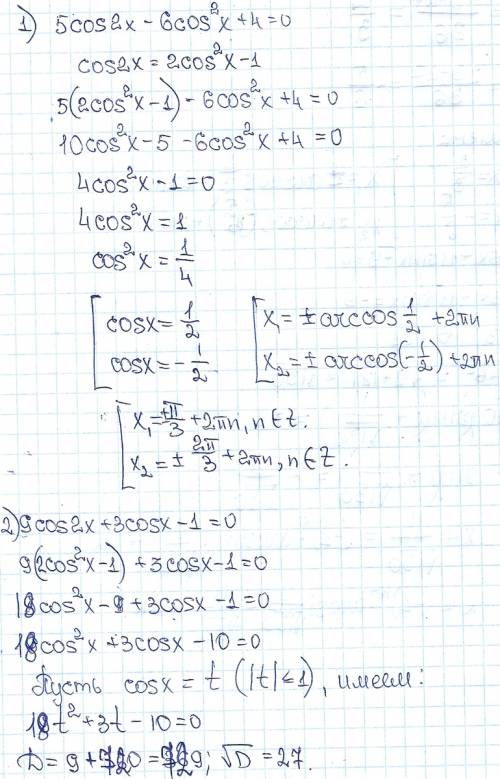 1) 5cos2x - 6cos²x + 4 = 0
cos2x = 2cos²x - 1
5(2cos²x - 1) - 6cos²x + 4 = 0
10cos²x - 5 - 6cos²x + 4 = 0
4cos²x - 1 = 0
4cos²x = 1
cos²x = 1/4
[ cosx = 1/2 [ x₁ = ± arccos 1/2 + 2πn
cosx = - 1/2 x₂ = ± arccos(-1/2) + 2πn
[ x₁ = ±π/3 + 2πn, n ∈ Z.
x₂ = ± 2π/3 + 2πn, n ∈ Z.
2) 9cos2x + 3cosx - 1 = 0
9(2cos²x - 1) + 3cosx - 1 = 0
18cos²x - 9 + 3cosx - 1 = 0
18cos²x + 3cosx - 10 = 0
Пусть cosx = t (|t| ≤ 1), имеем:
18t² + 3t - 10 = 0
D = 9 + 720 = 729; √D = 27.